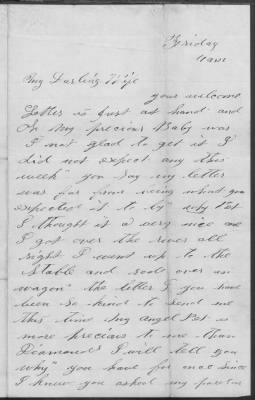 Friday
9 am
My Darling Wife
your welcome
Letter is just at hand and
Oh my precious Baby was
I not glad to get it I
did not expect any this
week" you say my letter
was far from being what you
expected it to by" why Pet
I thought it a very nice one
I got over the river all
right I went up to the
Stable and rode over in
wagon" the letter I you have
been so kind to send me
this time my Angel Pet is
more precious to me than
Diamonds I will tell you
why" you have for once since
I knew you asked my pardon